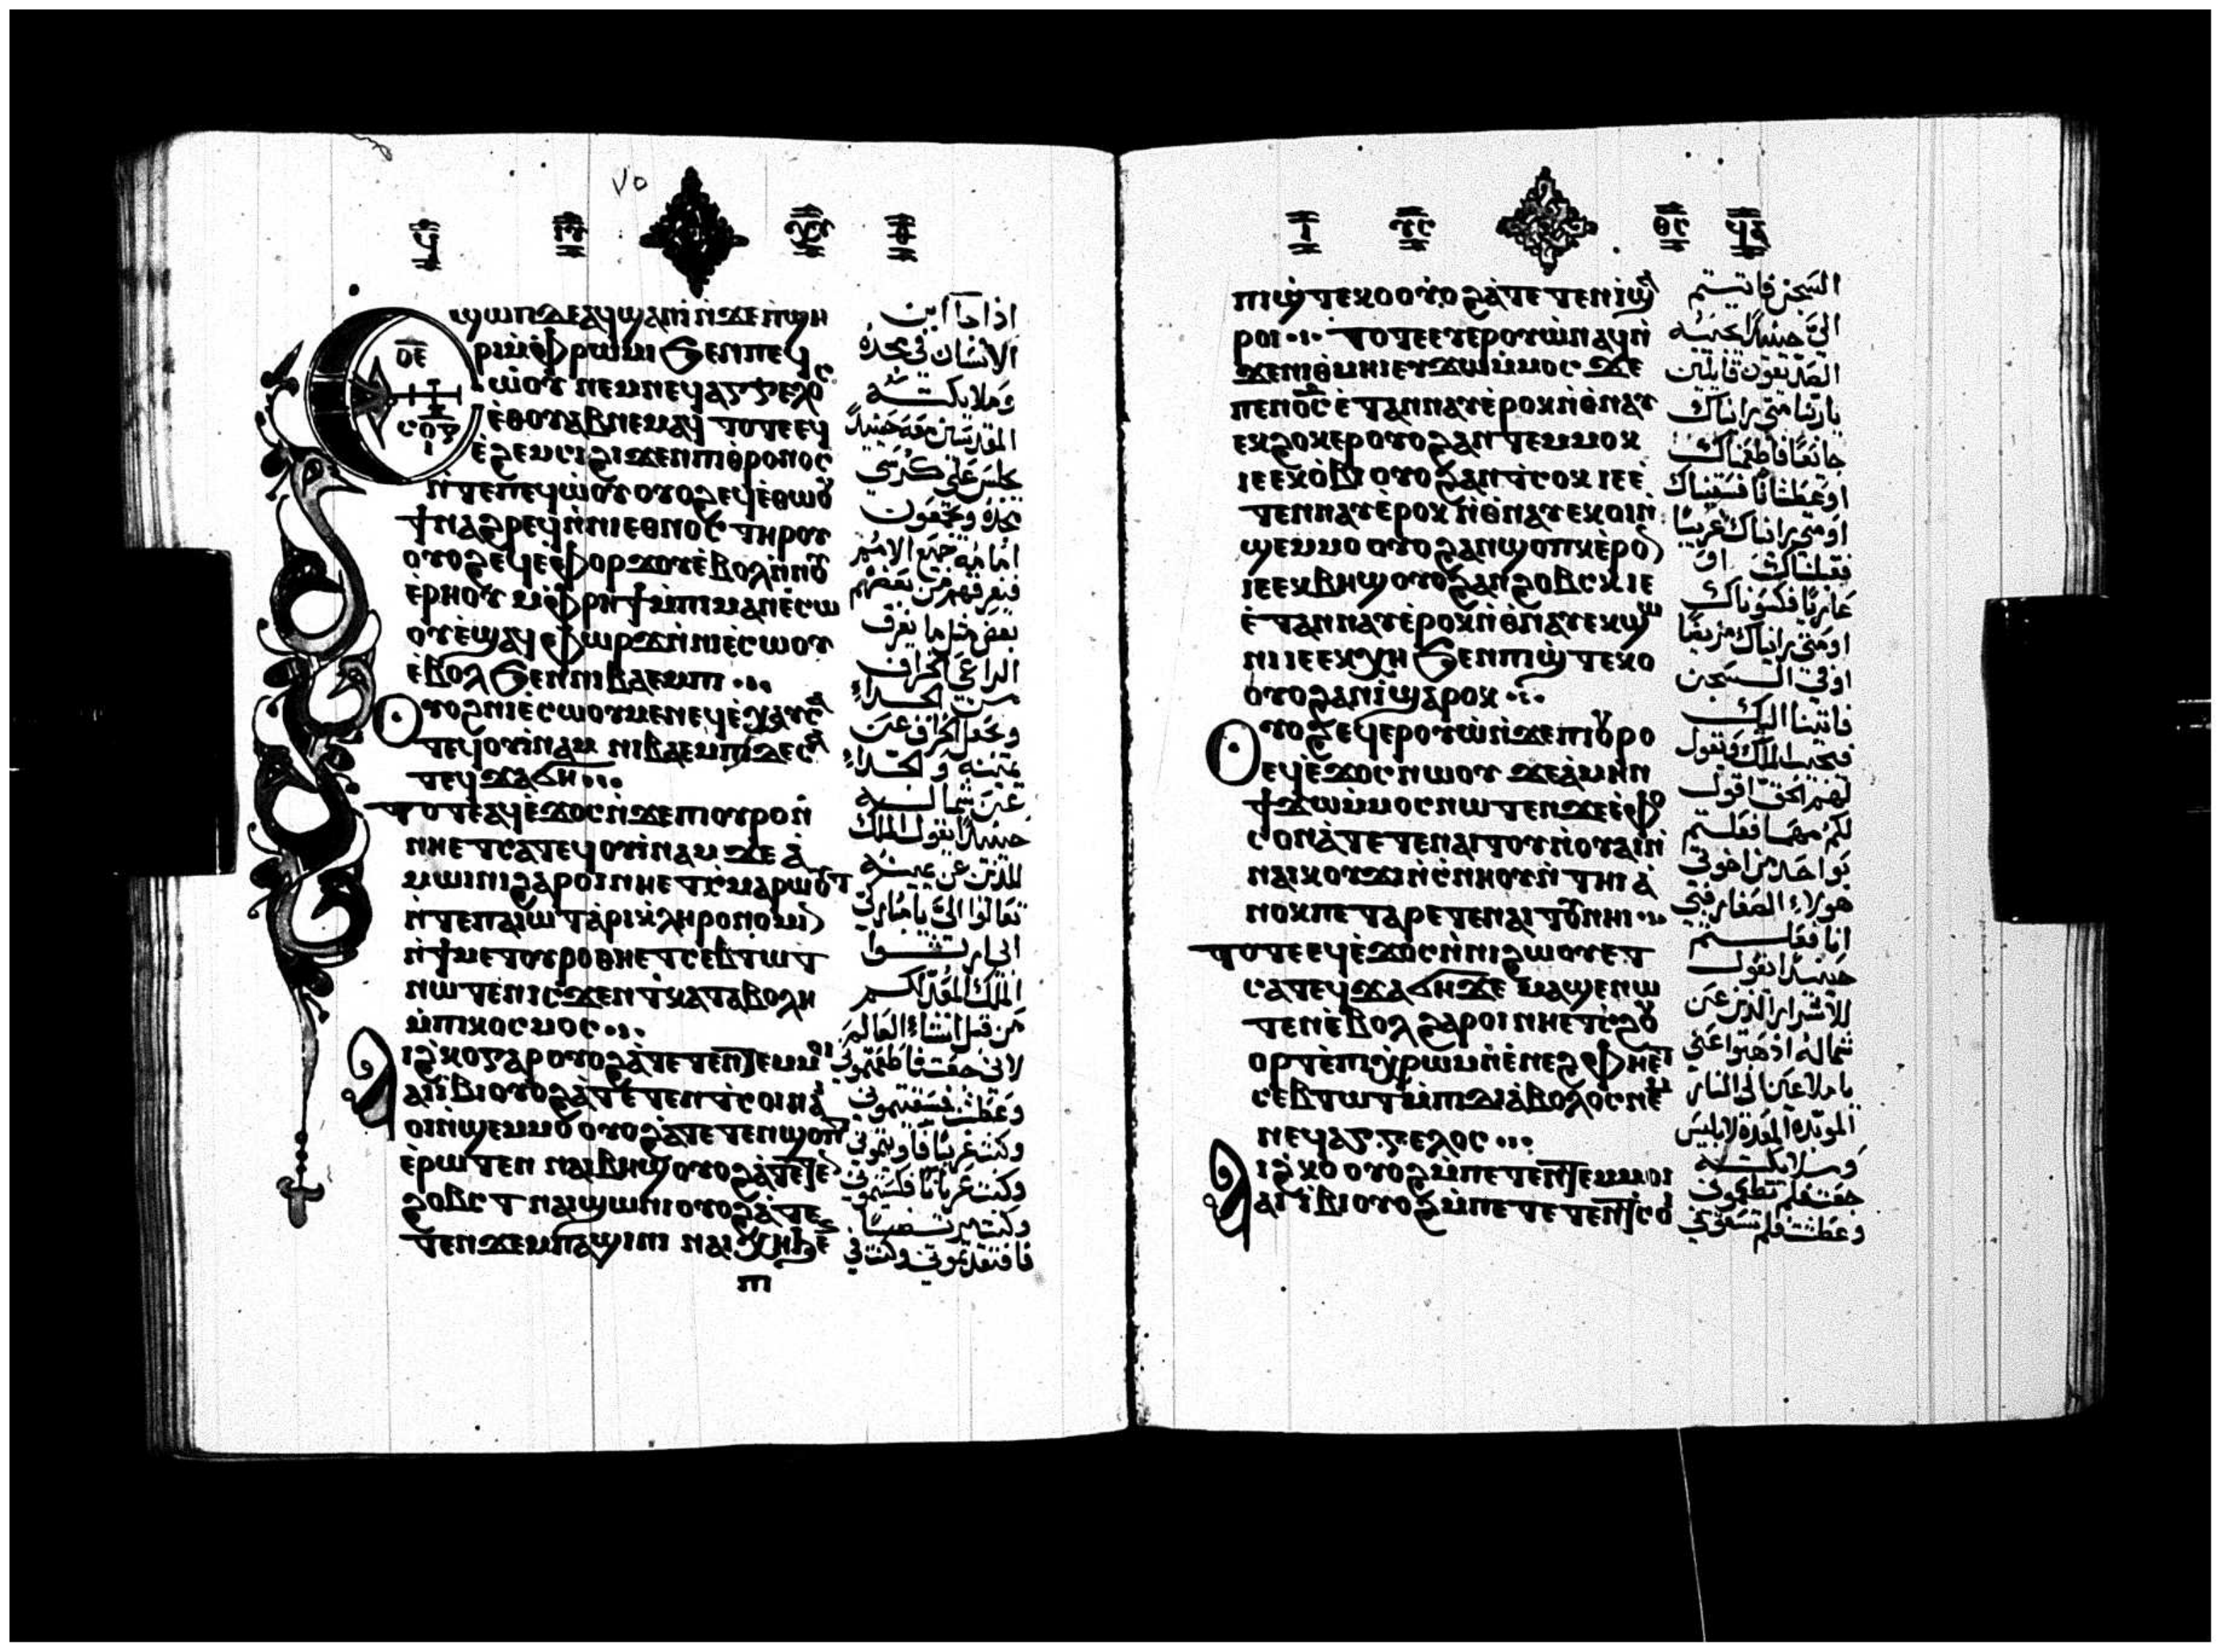 ٧٥
ϣⲱⲡ ⲇⲉ ⲁϥϣⲁⲛⲓ̀ ⲛ̀ϫⲉ ⲡ̀ϣⲏ
ⲣⲓ ⲙ̀ⲫ̀ⲣⲱⲙⲓ ϧⲉⲛ ⲡⲉϥ
ⲱ̀ⲟⲩ ⲛⲉⲙ ⲛⲉϥⲁⲅⲅⲉⲗⲟⲥ
ⲉ̀ⲑⲟⲩⲁⲃ ⲛⲉⲙⲁϥ ⲧⲟⲧⲉ ⲉϥ
ⲉ̀ϩⲉⲙⲥⲓ ϩⲓϫⲉⲛ ⲡⲓⲑⲣⲟⲛⲟⲥ
ⲛ̀ⲧⲉ ⲡⲉϥⲱⲟⲩ ⲟⲩⲟϩ ⲉϥⲉ̀ⲑⲱⲟⲩ
ϯ ⲛⲁϩⲣⲉϥ ⲛ̀ⲛⲓⲉⲑⲛⲟⲥ ⲧⲏⲣⲟⲩ
ⲟⲩⲟϩ ⲉϥⲉ̀ⲫⲟⲣϫⲟⲩ ⲉ̀ⲃⲟⲗ ⲛ̀ⲛⲟⲩ
ⲉ̀ⲣⲏⲟⲩ ⲙ̀ⲫⲣⲏϯ ⲙ̀ⲡⲓⲙⲁⲛⲉ̀ⲥⲱ
ⲟⲩ ⲉ̀ϣⲁϥⲫⲱⲣϫ ⲛ̀ⲛⲓⲉ̀ⲥⲱⲟⲩ
ⲉ̀ⲃⲟⲗ ϧⲉⲛ ⲛⲓⲃⲁⲉⲙⲡⲓ
ⲟⲩⲟϩ ⲛⲓⲉ̀ⲥⲱⲟⲩ ⲙⲉⲛ ⲉϥⲉ̀ⲭⲁⲩ ⲥⲁ
ⲧⲉϥⲟⲩⲓ̀ⲛⲁⲙ ⲛⲓⲃⲁⲉⲙⲡⲓ ⲇⲉ ⲥⲁ
ⲧⲉϥϫⲁϭⲏ
ⲧⲟⲧⲉ ⲁϥⲉ̀ϫⲟⲥ ⲛ̀ϫⲉ ⲡⲓⲟⲩⲣⲟ ⲛ̀
ⲛⲏⲉⲧⲥⲁⲧⲉϥⲟⲩⲓ̀ⲛⲁⲙ ϫⲉ ⲁ̀
ⲙⲱⲓⲛⲓ ϩⲁⲣⲟⲓ ⲛⲏⲉⲧⲥ̀ⲙⲁⲣⲱⲟⲩⲧ
ⲛ̀ⲧⲉ ⲡⲁⲓⲱⲧ ⲁ̀ⲣⲓⲕ̀ⲗⲏⲣⲟⲛⲟⲙⲓⲛ
ⲛ̀ϯⲙⲉⲧⲟⲩⲣⲟ ⲑⲏⲉⲧⲥⲉⲃⲧⲱⲧ
ⲛⲱⲧⲉⲛ ⲓⲥϫⲉⲛ ⲧⲕⲁⲧⲁⲃⲟⲗⲏ
ⲙ̀ⲡⲓⲕⲟⲥⲙⲟⲥ
ⲁⲓϩ̀ⲕⲟ ⲅⲁⲣ ⲟⲩⲟϩ ⲁ̀ⲧⲉⲧⲉⲛⲧⲉⲙⲙⲟⲓ
ⲁⲓⲓ̀ⲃⲓ ⲟⲩⲟϩ ⲁ̀ⲧⲉⲧⲉⲛⲧ̀ⲥⲟⲓ ⲛⲁⲓ
ⲟⲓ ⲛ̀ϣⲉⲙⲙⲟ ⲟⲩⲟϩ ⲁ̀ⲧⲉⲧⲉⲛϣⲟⲡⲧ
ⲉ̀ⲣⲱⲧⲉⲛ ⲛⲁⲓⲃⲏϣ ⲟⲩⲟϩ ⲁ̀ⲧⲉⲧⲉⲛ
ϩⲟⲃⲥⲧ ⲛⲁⲓϣⲱⲛⲓ ⲟⲩⲟϩ ⲁ̀ⲧⲉ
ⲧⲉⲛϫⲉⲙⲡⲁϣⲓⲛⲓ ⲛⲁⲓⲭⲏ ϧⲉⲛ
ⲡⲓ
اذا جا ابن
الانسان في مجده
وملايكته
المقدسين معه حينيدًا
يجلس على كرسي
مجده ويجتمعون
امامه جميع الامم
فيفرقهم من بعضهم
بعض مثل ما يفرق
الراعي الخراف
من الجدا
ويجعل الخراف عن
يمينه والجدا
عن شماله
حينيدًا يقول الملك
للذين عن يمينه
تعالوا اليّ يا مباركي
ابي ارثوا
الملك المعد لكم
من قبل انشاء العالم
لاني جعت فاطعمتموني
وعطشت فسقيتموني
وكنت غريبًا فاويتموني
وكنت عريانًا فكسيتموني
وكنت مريضًا
فافتقدتموني وكنت في
ⲡⲓϣ̀ⲧⲉⲕⲟ ⲟⲩⲟϩ ⲁ̀ⲧⲉⲧⲉⲛⲓ̀ ϣⲁ
ⲣⲟⲓ ⲧⲟⲧⲉ ⲉⲩⲉ̀ⲣⲟⲩⲱ̀ ⲛⲁϥ ⲛ̀
ϫⲉ ⲛⲓⲑ̀ⲙⲏⲓ ⲉⲩϫⲱ ⲙ̀ⲙⲟⲥ ϫⲉ
ⲡⲉⲛⲟ̅ⲥ̅ ⲉ̀ⲧⲁⲛⲛⲁⲩ ⲉ̀ⲣⲟⲕ ⲛ̀ⲑⲛⲁⲩ
ⲉⲕϩⲟⲕⲉⲣ ⲟⲩⲟϩ ⲁⲛⲧⲉⲙⲙⲟⲕ
ⲓⲉ ⲉⲕⲟ̀ⲃⲓ ⲟⲩⲟϩ ⲁⲛⲧ̀ⲥⲟⲕ ⲓⲉ ⲉ̀
ⲧⲉⲛⲛⲁⲩ ⲉ̀ⲣⲟⲕ ⲛ̀ⲑⲛⲁⲩ ⲉⲕⲟⲓ ⲛ̀
ϣⲉⲙⲙⲟ ⲟⲩⲟϩ ⲁⲛϣⲟⲡⲕ ⲉ̀ⲣⲟⲛ
ⲓⲉ ⲉⲕⲃⲏϣ ⲟⲩⲟϩ ⲁⲛϩⲟⲃⲥⲕ ⲓⲉ
ⲉ̀ⲧⲁⲛⲛⲁⲩ ⲉ̀ⲣⲟⲕ ⲛ̀ⲑⲛⲁⲩ ⲉⲕϣⲱ
ⲛⲓ ⲓⲉ ⲉⲕⲭⲏ ϧⲉⲛ ⲡⲓϣ̀ⲧⲉⲕⲟ
ⲟⲩⲟϩ ⲁⲛⲓ̀ ϣⲁⲣⲟⲕ
ⲟⲩⲟϩ ⲉϥⲉⲣⲟⲩⲱ̀ ⲛ̀ϫⲉ ⲡⲓⲟⲩⲣⲟ
ⲉϥⲉ̀ϫⲟⲥ ⲛⲱⲟⲩ ϫⲉ ⲁ̀ⲙⲏⲛ
ϯϫⲱ ⲙ̀ⲙⲟⲥ ⲛⲱⲧⲉⲛ ϫⲉ ⲉ̀ⲫⲟ
ⲥⲟⲛ ⲁ̀ⲧⲉⲧⲉⲛⲁⲓⲧⲟⲩ ⲛ̀ⲟⲩⲁⲓ ⲛ̀
ⲛⲁⲓⲕⲟⲩϫⲓ ⲛ̀ⲥ̀ⲛⲏⲟⲩ ⲛ̀ⲧⲏⲓ ⲁ̀
ⲛⲟⲕ ⲡⲉⲧⲁⲣⲉⲧⲉⲛⲁⲓⲧⲟⲩ ⲛⲏⲓ
ⲧⲟⲧⲉ ⲉϥⲉ̀ϫⲟⲥ ⲛ̀ⲛⲓϩⲱⲟⲩ ⲉⲧ
ⲥⲁⲧⲉϥϫⲁϭⲏ ϫⲉ ⲙⲁϣⲉⲛⲱ
ⲧⲉⲛ ⲉ̀ⲃⲟⲗ ϩⲁⲣⲟⲓ ⲛⲏⲉⲧⲥ̀ϩⲟⲩ
ⲟⲣⲧ ⲉ̀ⲡⲓⲭ̀ⲣⲱⲙ ⲛ̀ⲉ̀ⲛⲉϩ ⲫⲏⲉⲧ
ⲥⲉⲃⲧⲱⲧ ⲙ̀ⲡⲓⲇⲓⲁ̀ⲃⲟⲗⲟⲥ ⲛⲉⲙ
ⲛⲉϥⲁⲅⲅⲉⲗⲟⲥ
ⲁⲓϩ̀ⲕⲟ ⲟⲩⲟϩ ⲙ̀ⲡⲉⲧⲉⲛⲧⲉⲙⲙⲟⲓ
ⲁⲓⲓ̀ⲃⲓ ⲟⲩⲟϩ ⲙ̀ⲡⲉⲧⲉⲧⲉⲛⲧⲥⲟⲓ
السجن فاتيتم
اليّ حينيدًا يجيبه
الصديقون قايلين
ياربنا متى رايناك
جائعًا فاطعمناك
او عطشانًا فسقيناك
او متى رايناك غريبًا
فقبلناك او
عاريًا فكسوناك
او متى رايناك مريضًا
او في السجن
فاتينا اليك
فيجيب الملك ويقول
لهم الحق اقول
لكم مهما فعلتم
بواحد من اخوتي
هولاء الصغار فبي
انا فعلتم
حينيدًا يقول
للاشرار الذين عن
شماله اذهبوا عني
يا ملاعين الى النار
الموبدة المعدة لابليس
وملايكته
جعت فلم تطعموني
وعطشت فلم تسقوني